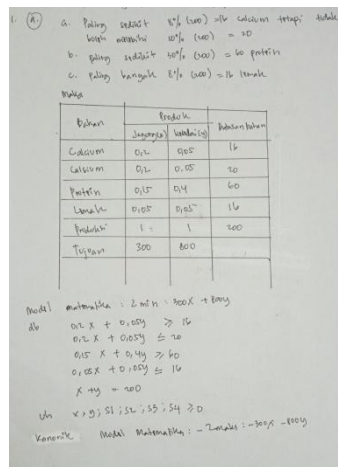 1. A. a. Paling sedikit 8% (200) = 16 calcium tetapi tidak
boleh melebihi 10% (200) = 20
b. Paling sedikit 30% (200) = 60 protein
c. Paling banyak 8% (200) = 16 lemak
Maka
Bahan Produk Batasan bahan
Jagung(x) kedelai(y)
Calcium 0,2 0,05 16
Calsium 0,2 0,05 20
Protein 0,15 0,4 60
Lemak 0,05 0,05 16
Produksi 1 1 200
Tujuan 300 800
Model matematika : Z min : 300X + 800y
db 0,2 X + 0,05y ≥ 16
0,2 X + 0,05y ≤ 20
0,15 X + 0,4y ≥ 60
0,05X + 0,05y ≤ 16
X + y = 200
uh x, y, S1, S2, S3, S4 ≥ 0
Kanonik Modal Matematika : - Zmaks : -300X - 800y